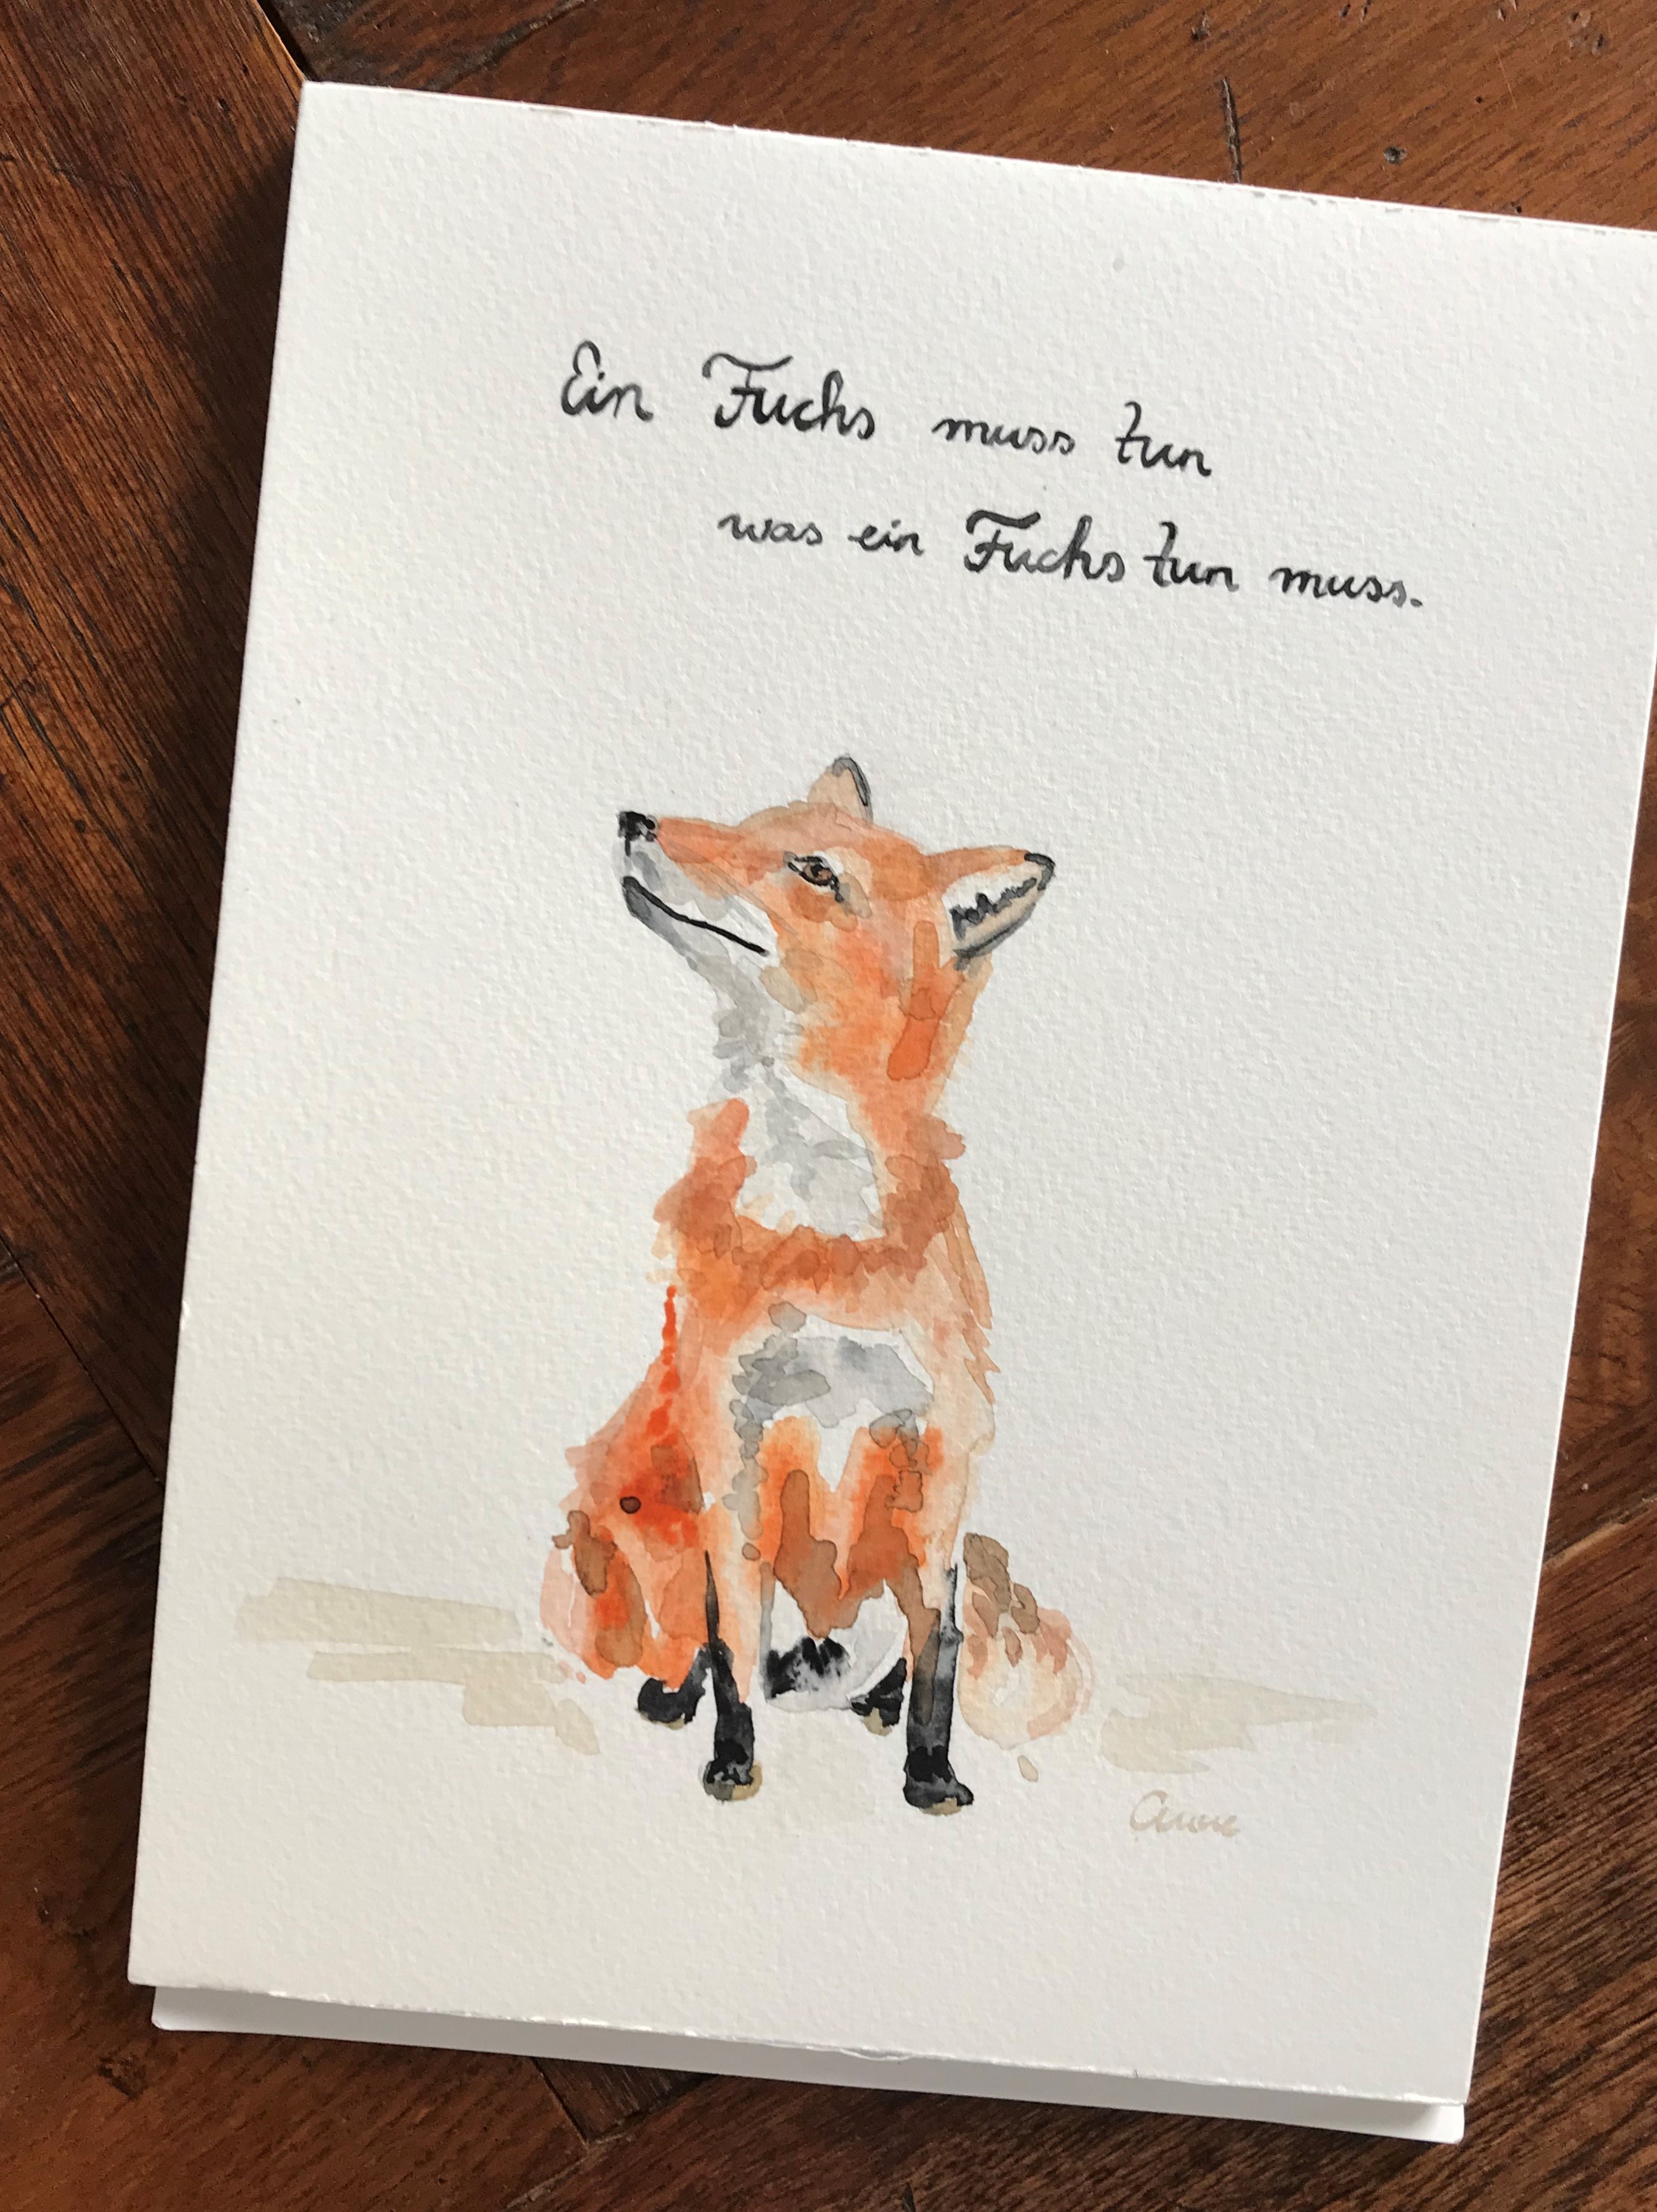 Ein Fuchs muss tun
was ein Fuchs tun muss.
Anne